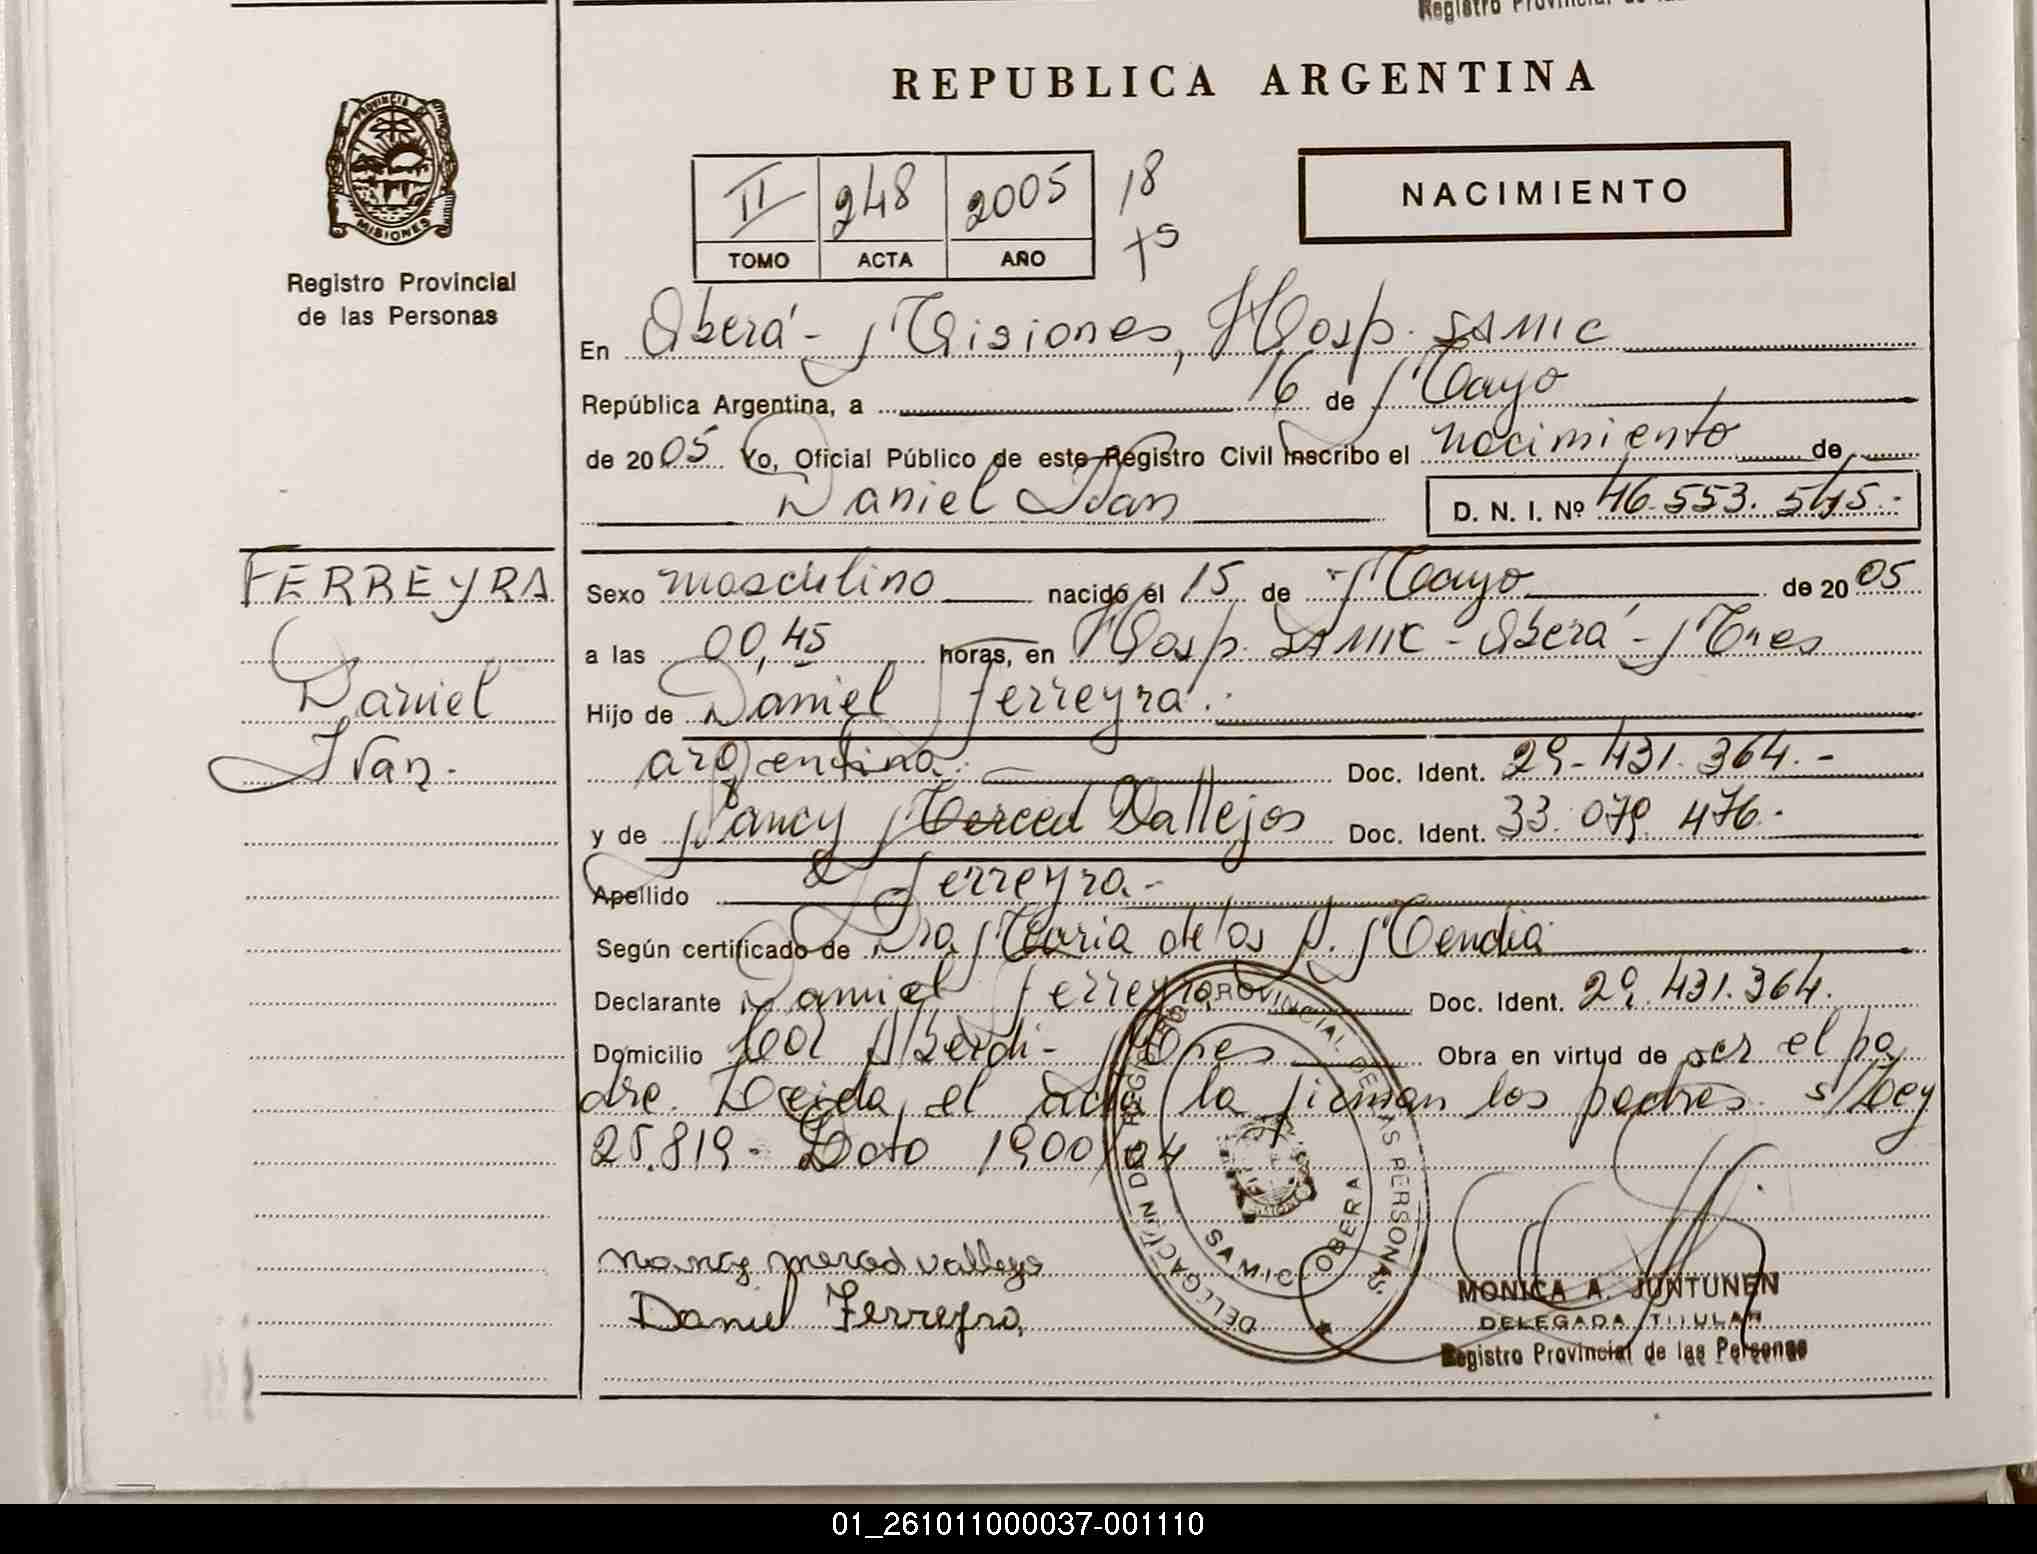 Registro Provincial de las
REPUBLICA ARGENTINA
PROVINCIA DE
MISIONES
Registro Provincial
de las Personas
II 248 2005
TOMO ACTA AÑO
18
NACIMIENTO
En Oberá - Misiones, Hosp. SAMIC
República Argentina, a 16 de Mayo
de 2005 Yo, Oficial Público de este Registro Civil inscribo el nacimiento de
Daniel Ivan D. N. I. Nº 46.553.545.-
FERREYRA
Daniel
Ivan.-
Sexo masculino nacido el 15 de Mayo de 2005
a las 00,45 horas, en Hosp. SAMIC - Oberá - Mnes
Hijo de Daniel Ferreyra.
argentina. Doc. Ident. 29.431.364.-
y de Nancy Merced Vallejos Doc. Ident. 33.079.476.-
Apellido Ferreyra.-
Según certificado de Dra Maria de los A. Mendia
Declarante Daniel Ferreyra Doc. Ident. 29.431.364.
Domicilio Col Alberdi - Mnes Obra en virtud de ser el pa
dre. Leida el acta la firman los padres s/Ley
25.819 - Dcto 1900/04
nancy merced vallejo
Daniel Ferreyra
DELEGACIÓN DEL REGISTRO PROVINCIAL DE LAS PERSONAS
SAMIC OBERA
MONICA A. JUNTUNEN
DELEGADA TITULAR
Registro Provincial de las Personas
01_261011000037-001110